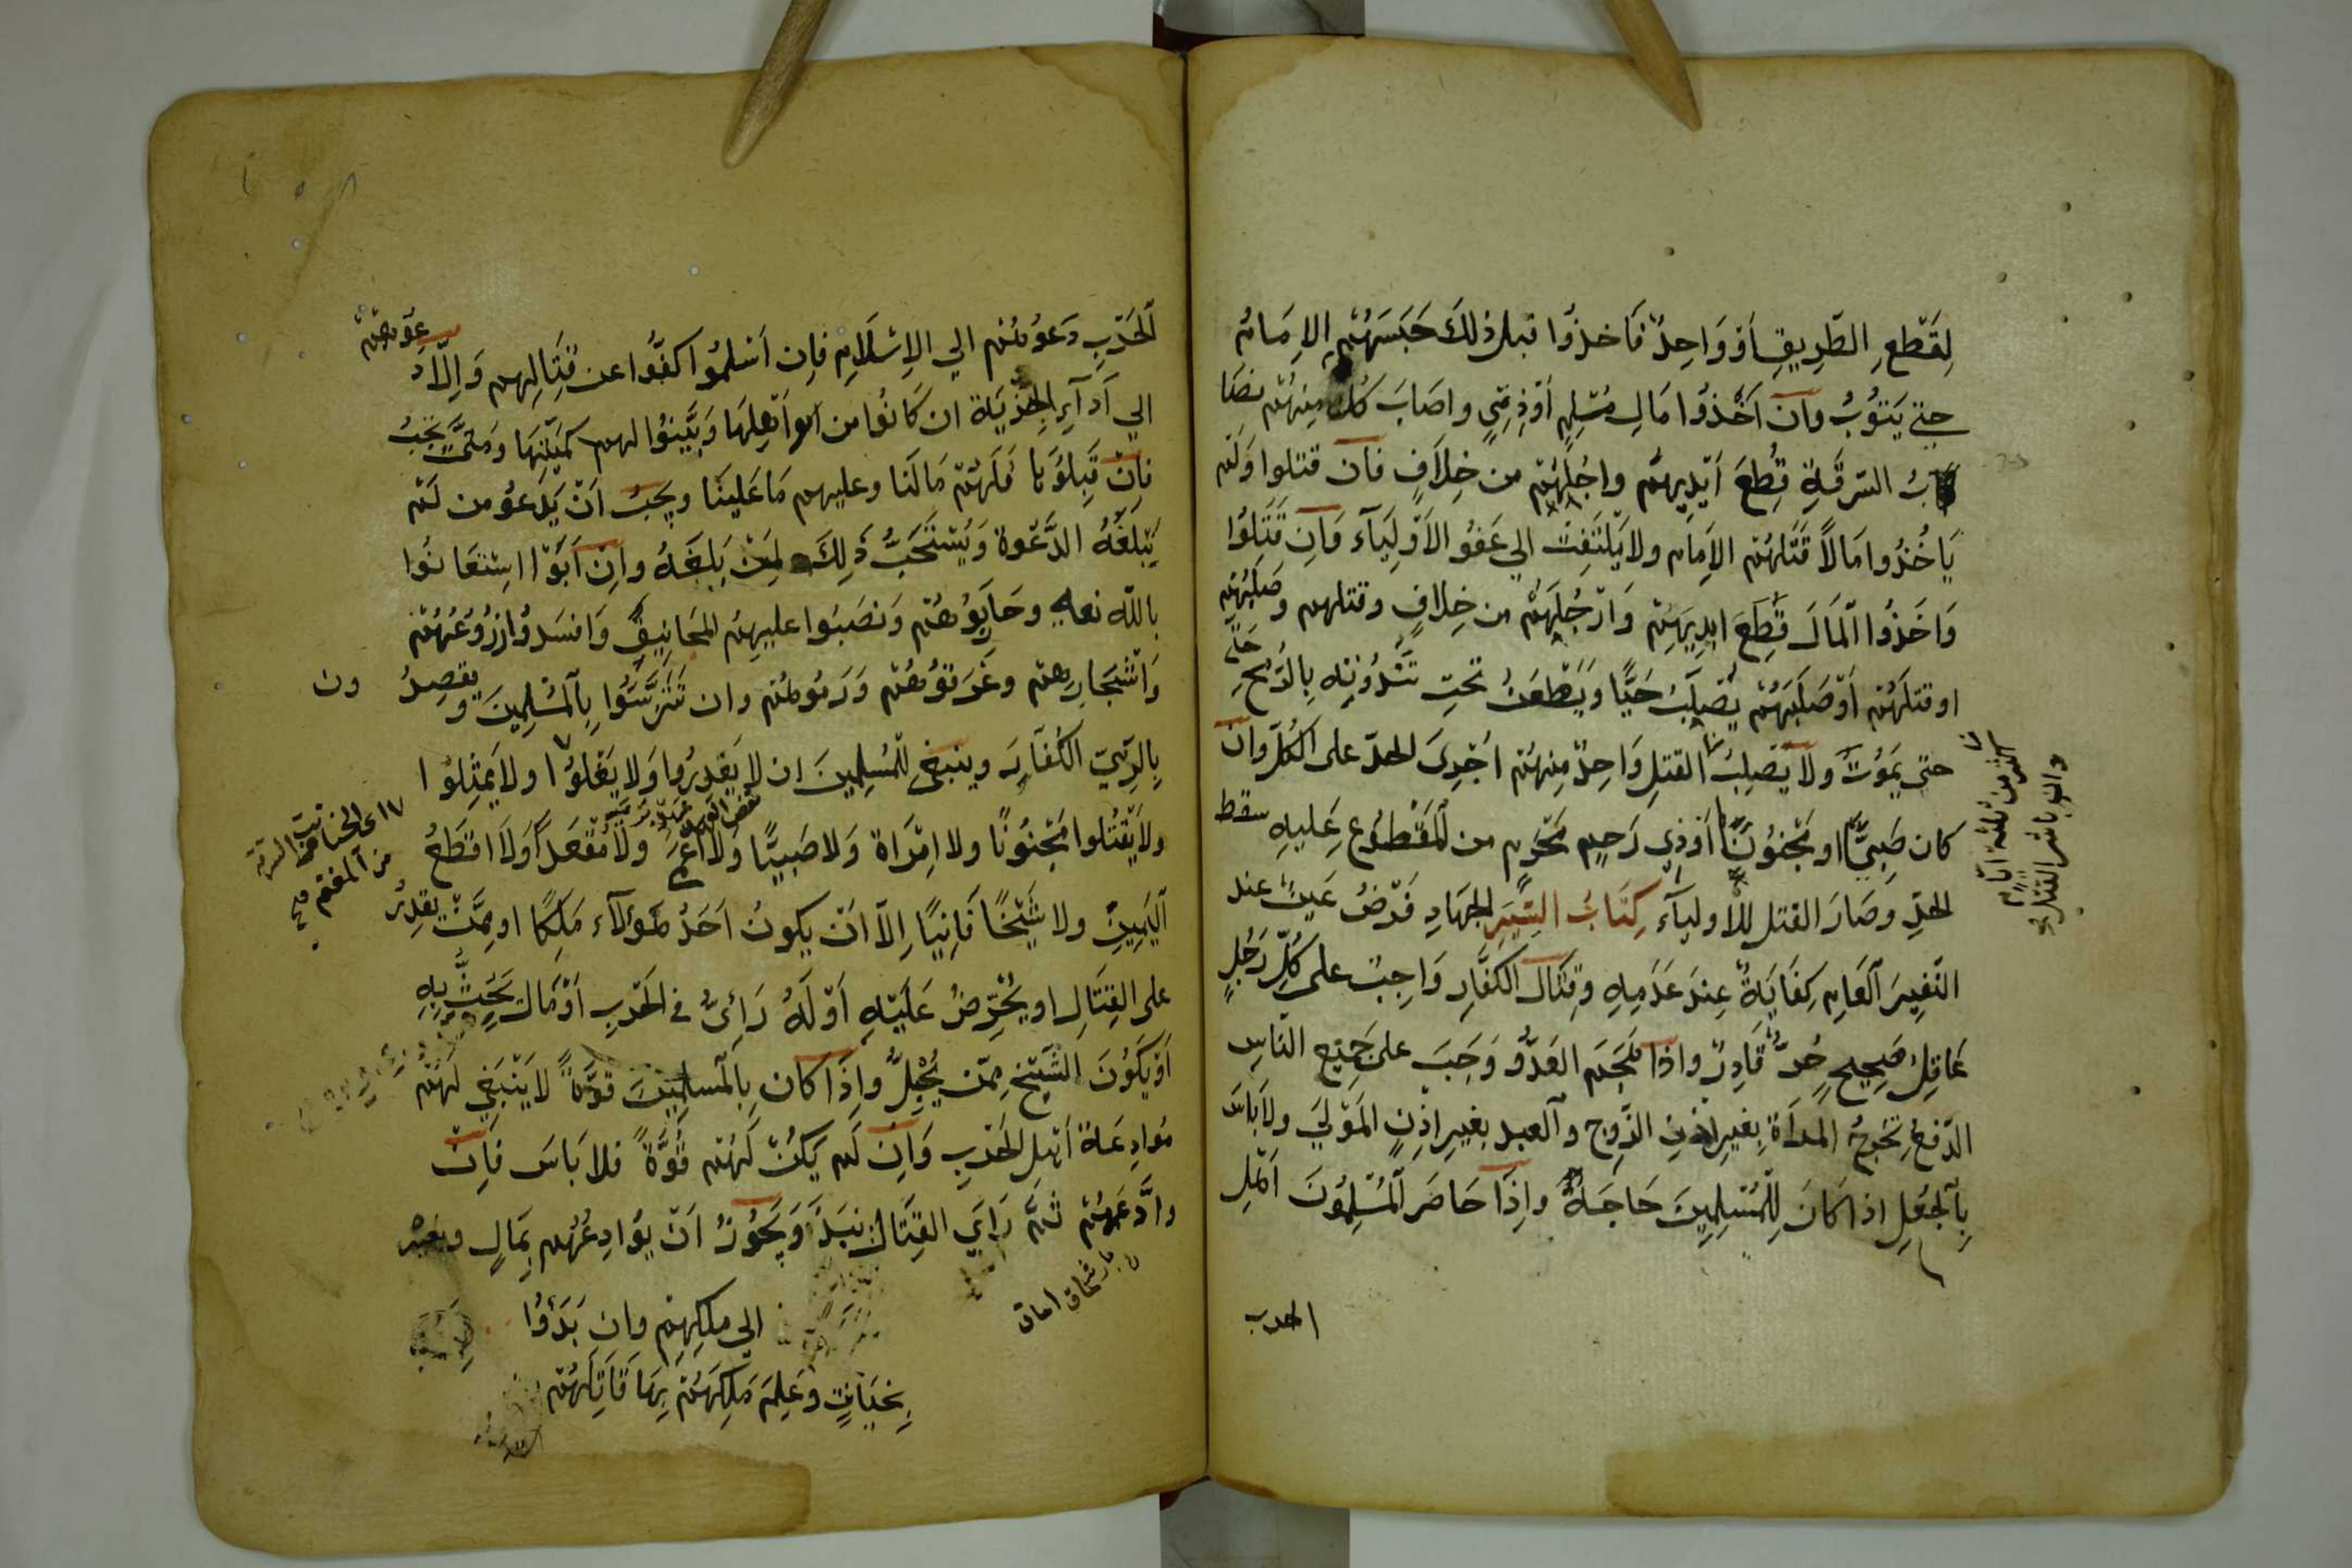 لِقَطْعِ الطَّرِيقِ أَوْ وَاحِدٌ فَاخذُوا قبل ذلكَ حَبَسَهُمُ الإِمَامُ
حتى يَتُوبُ وان اَخَذُوا مَالِ مُسْلِمٍ أَوْ ذِمِّيٍ واصَابَ كُل مِنهُمْ نصَا
بُ السّرقَةِ قُطِعَ اَيْدِيهِم وارجُلُهُمْ من خِلَافٍ فان قتلوا وَلَم
يَاخُذُوا مَالاً قَتَلَهُمْ الإمَام ولا يَلْتَفِتْ الي عَفُو الاَوْلِيَآء وَاِن قَتَلُوا
وَاخَذُوا الْمَالَ قُطِعَ ايدِيهِمْ وَارْجُلَهُمْ من خِلافٍ وقتلهم وصَلَبَهُمْ
او قتلَهُمْ اَوْ صَلَبَهُمْ يُصْلَبُ حَيًّا وَيُطْعَنُ تحتِ ثَنْدُوَتِهِ بِالرُّمْحِ
حتى يَمُوتَ ولا يُصْلَبُ القتلِ وَاحِدٌ مِنهُمْ اُجْرِىَ الحدّ على الكُلّ وان
كان صَبِيًّا او مَجْنُونًا اَوْ ذِي رَحِمٍ مَحْرَمٍ من الْمَقْطُوعِ عَليهِ سقط
الحدّ وَصَارَ القتل للاولياء كِتَابُ السِّيَرِ الجِهَادِ فَرْضُ عَيْنٍ عند
النَّفِيرَ العَام كِفَايَةٌ عِندَ عَدَمِهِ وقِتَالُ الكفَّارِ وَاجِبٌ على كُلِّ رَجُلٍ
عَاقِلٍ صَحِيحٍ حُرٍّ قَادِرٌ واذا هَجَمَ العَدُوُّ وَجَبَ على جَمِيع النّاسِ
الدّفعُ تَخْرُجُ المرأةُ بِغيرِ اذنِ الزّوجِ والعبد بِغيرِ اِذْنِ المَوْلَي ولا بَاسَ
بِالْجُعْلِ اذا كَانَ لِلْمُسْلِمِينَ حَاجَةٌ واِذَا حَاصَرَ الْمُسْلِمُونَ اَهْلِ
الحرب
الْحَرْبِ دَعَوْهُمْ الي الاِسْلَامِ فاِن اَسْلمُوا كفّوا عن قِتَالِهم وَاِلّا دعوهم
الي اَدآءِ الجِزْيَة ان كَانُوا من اَهْلِهَا وَبَيَّنُوا لهم كميّتها وَمَتى تَجِبُ
فاِنْ قَبِلُوَا فَلَهُمْ مَا لَنَا وعليهم مَا عَلينَا ويجبُ اَنْ يَدْعُو من لَم
يَبْلُغْهُ الدَّعْوة وَيُسْتَحَبُّ ذَلِكَ لِمَنْ بَلَغَهُ وان اَبَوْا اسْتَعَانُوا
بالله تعالى وحَارَبُوهُمْ وَنَصَبُوا عليهِمُ المَجَانِيقَ وَافسَدُوا زُرُوعَهُمْ
وَاشْجَارِهمْ وغَرَقُوهُمْ وَرَمَوهُمْ وان تَتَرَّسُوا بِالْمُسْلِمِينَ ويقصِدُ ون
بِالرَّمِيِ الكُفَّارَ وينبغي للمُسلِمِينَ ان لا يَغْدِرُوا وَلا يَغلُوا ولا يَمثِلُوا
ولا يَقْتُلوا مَجْنُونًا ولا اِمْرَاة وَلا صَبِيًّا وَلا اَعمَي ولا مُقْعَدًا وَلا اقطَعُ
اليَمِينِ ولا شَيْخًا فَانِيًا اِلاّ اَنْ يكونُ اَحَدُ هَؤلآء مَلِكًا او مِمَّنْ يقدِرُ
على القِتَالِ او يُحَرِّضُ عَلَيْهِ اَوْ لَهُ رَأيٌ في الحَربِ اَوْ مَال يَحُثُّ بِهِ
اَوْ يَكُونَ الشَّيخ مِمّن يُحْيلُ واِذَا كان بِالْمسلِمِينَ قوّةٌ لا يَنْبَغِي لَهُمْ
مُوادِعَة اَهلِ الحَربِ وَاِنْ لَم يَكُنْ لَهُمْ قُوَّةٌ فلا بَاسَ فَاِنْ
وادَعَهُمْ ثُمَّ رَاَيَ القِتَال نَبَذَ وَيَجُوزُ اَنْ يُوَادِعُهُم بِمَالٍ وبغيره
الي ملكِهِمْ وان بَدَؤُا
بِخيَانَةٍ وعَلِمَ مَلِكَهُمْ بِهَا قَاتَلَهُمْ